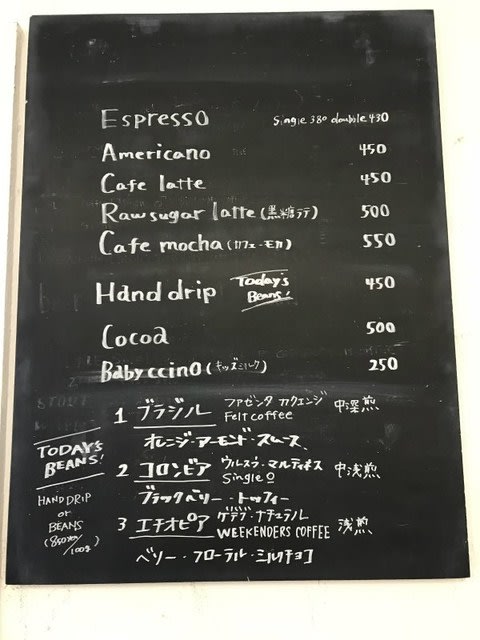 Espresso single 380 double 430
Americano 450
Cafe latte 450
Raw sugar latte (黒糖ラテ) 500
Cafe mocha (カフェ・モカ) 550
Hand drip Today's Beans! 450
Cocoa 500
Babyccino (キッズミルク) 250
TODAY'S BEANS!
HAND DRIP
or
BEANS
(850yen/100g)
1 ブラジル ファゼンダ カクェンジ 中深煎
Felt coffee
オレンジ・アーモンド・スムース
2 コロンビア ウルスラ・マルティネス 中浅煎
Single O
ブラックベリー・トッフィー
3 エチオピア ゲデブ・ナチュラル 浅煎
WEEKENDERS COFFEE
ベリー・フローラル・ミルクチョコ